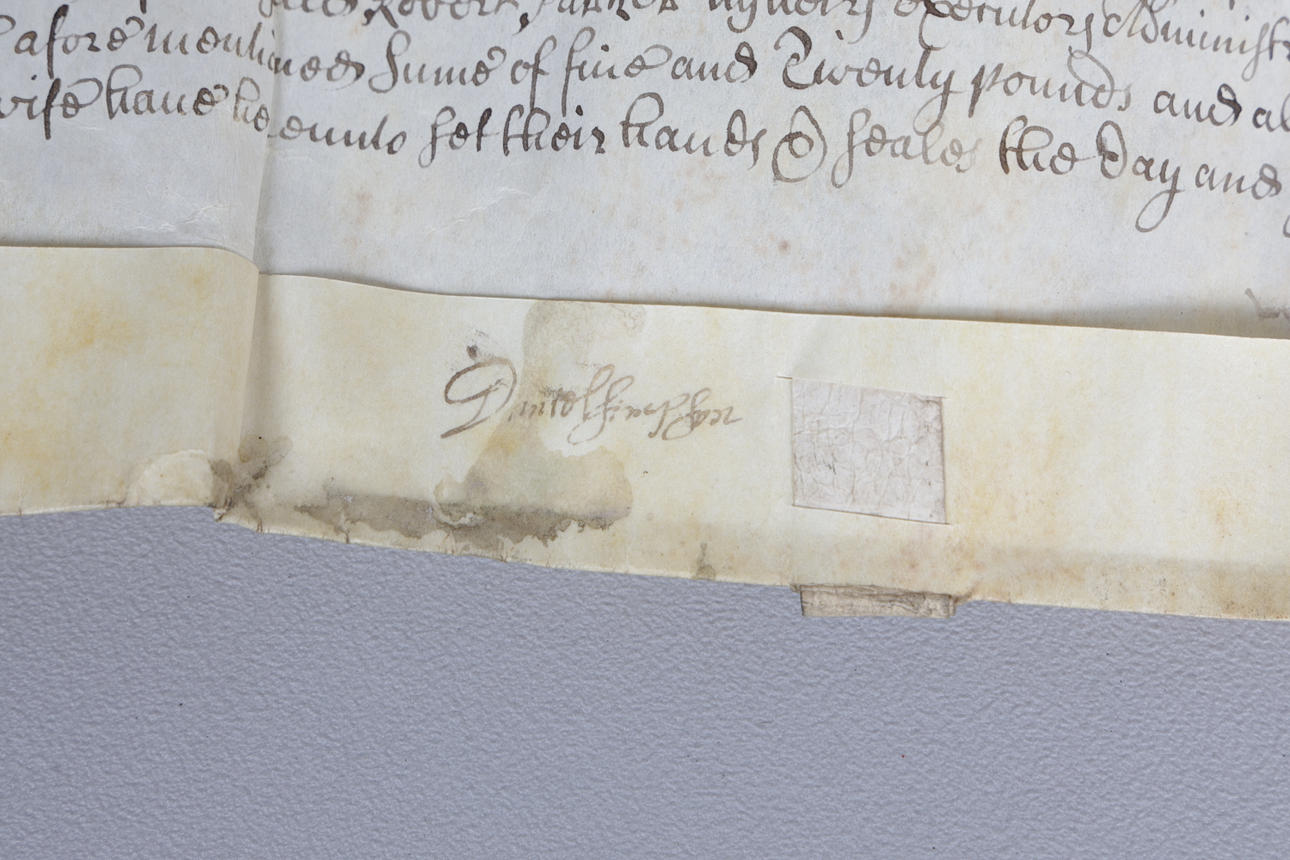 Robert Parker his heirs executors Administ
aforementioned sume of five and Twenty pounds and al
wife have hereunto set their hands & seales the day and
Daniel Simpson